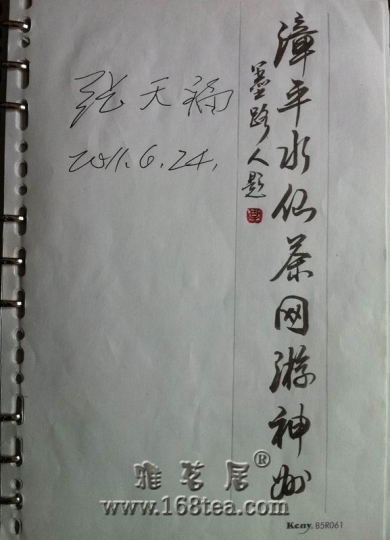 漳平水仙茶网游神州
墨路人题
张天福
2011.6.24.
雅茗居®
www.168tea.com
Keny. B5R061